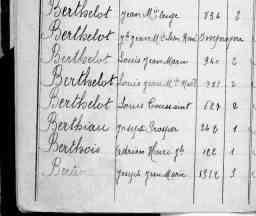 Berthelot Jean Mie Ange 934 2
Berthelot
Berthelot Louis Jean Marie 940 2
Berthelot Louis Jean Mie Noël 2
Berthelot Louis Toussaint 627 2
Berthiau Joseph Prosper 242 1
Berthois Adrien Henri 122 1
Bertin Joseph Jean Marie 1312 3